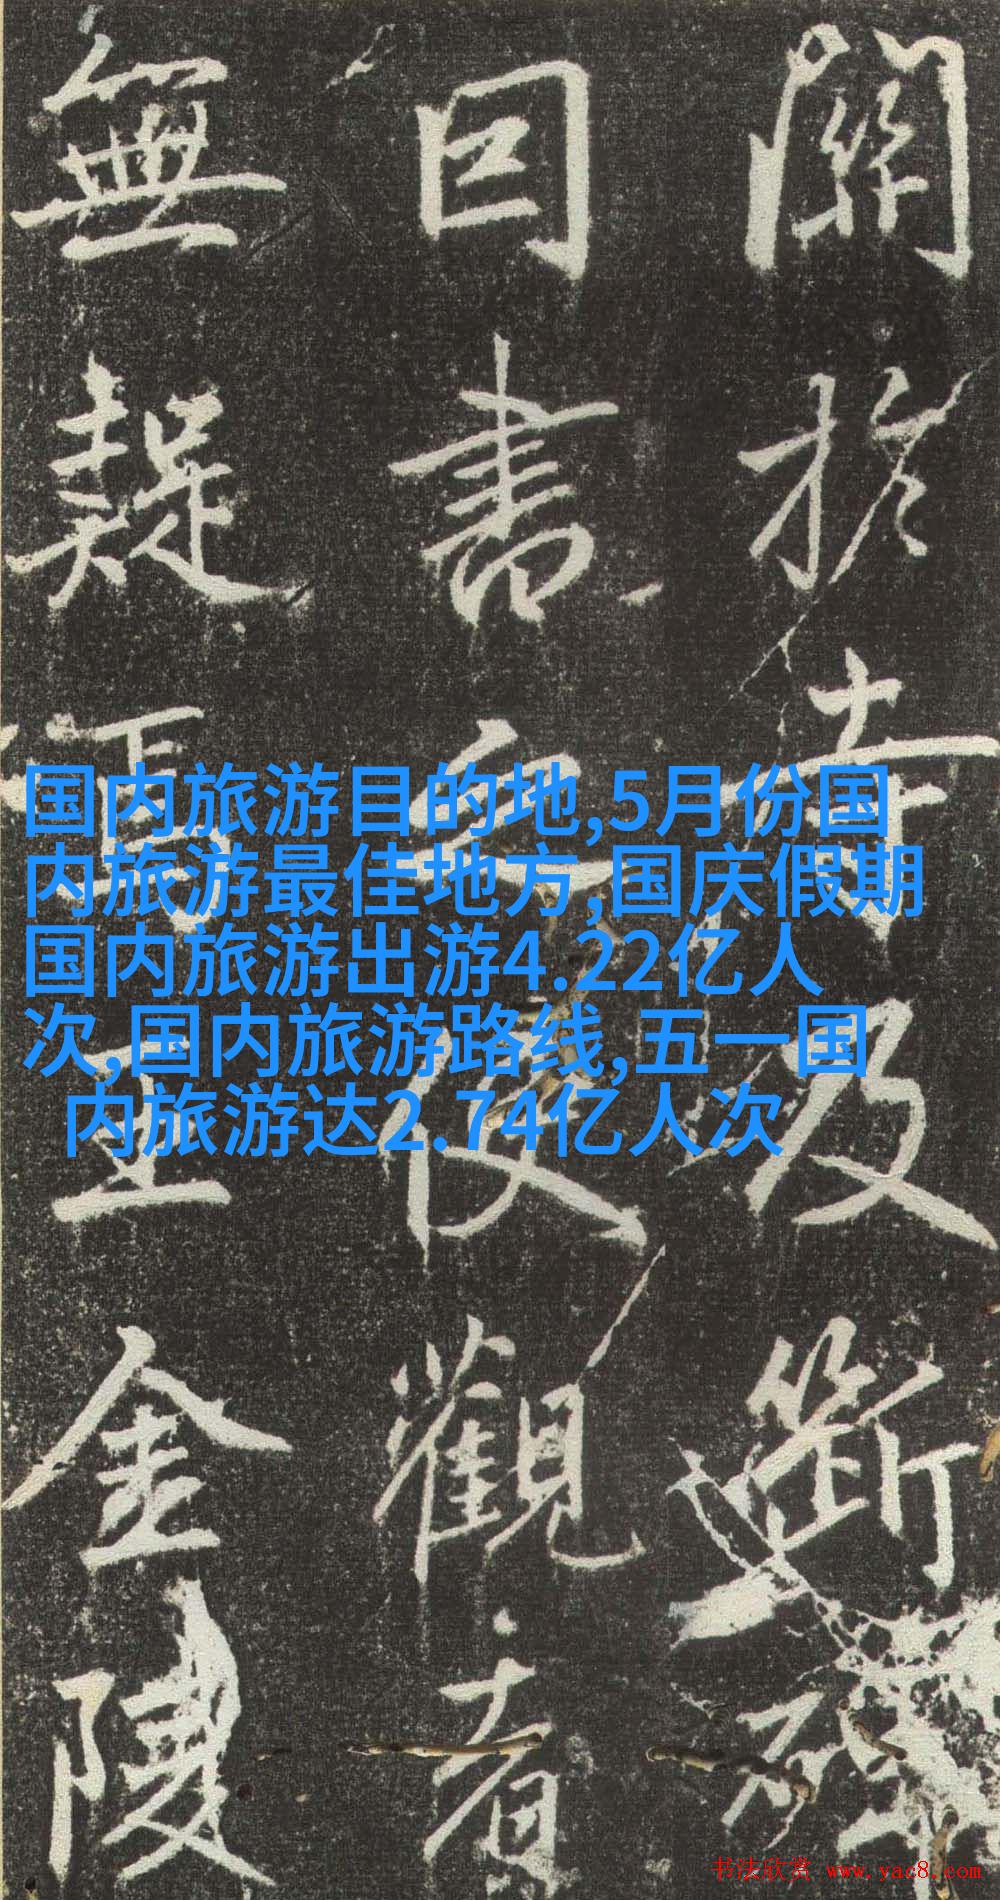 關於寺及斷
曰書之使觀者
無疑焉王金陵
国内旅游目的地,5月份国
内旅游最佳地方,国庆假期
国内旅游出游4.22亿人
次,国内旅游路线,五一国
内旅游达2.74亿人次
书法欣赏 www.yac8.com